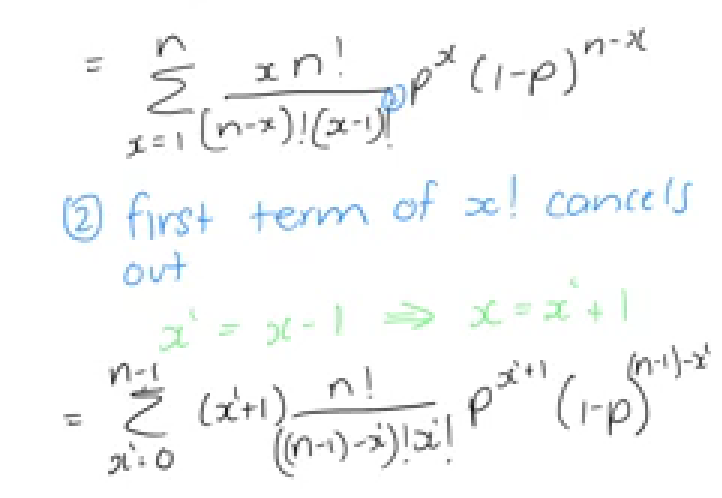 = \sum_{x=1}^{n} \frac{x n!}{(n-x)!(x-1)!} ② p^x (1-p)^{n-x}
② first term of x! cancels
out
x' = x-1 ⇒ x = x'+1
= \sum_{x'=0}^{n-1} (x'+1) \frac{n!}{((n-1)-x')!x'!} p^{x'+1} (1-p)^{(n-1)-x'}